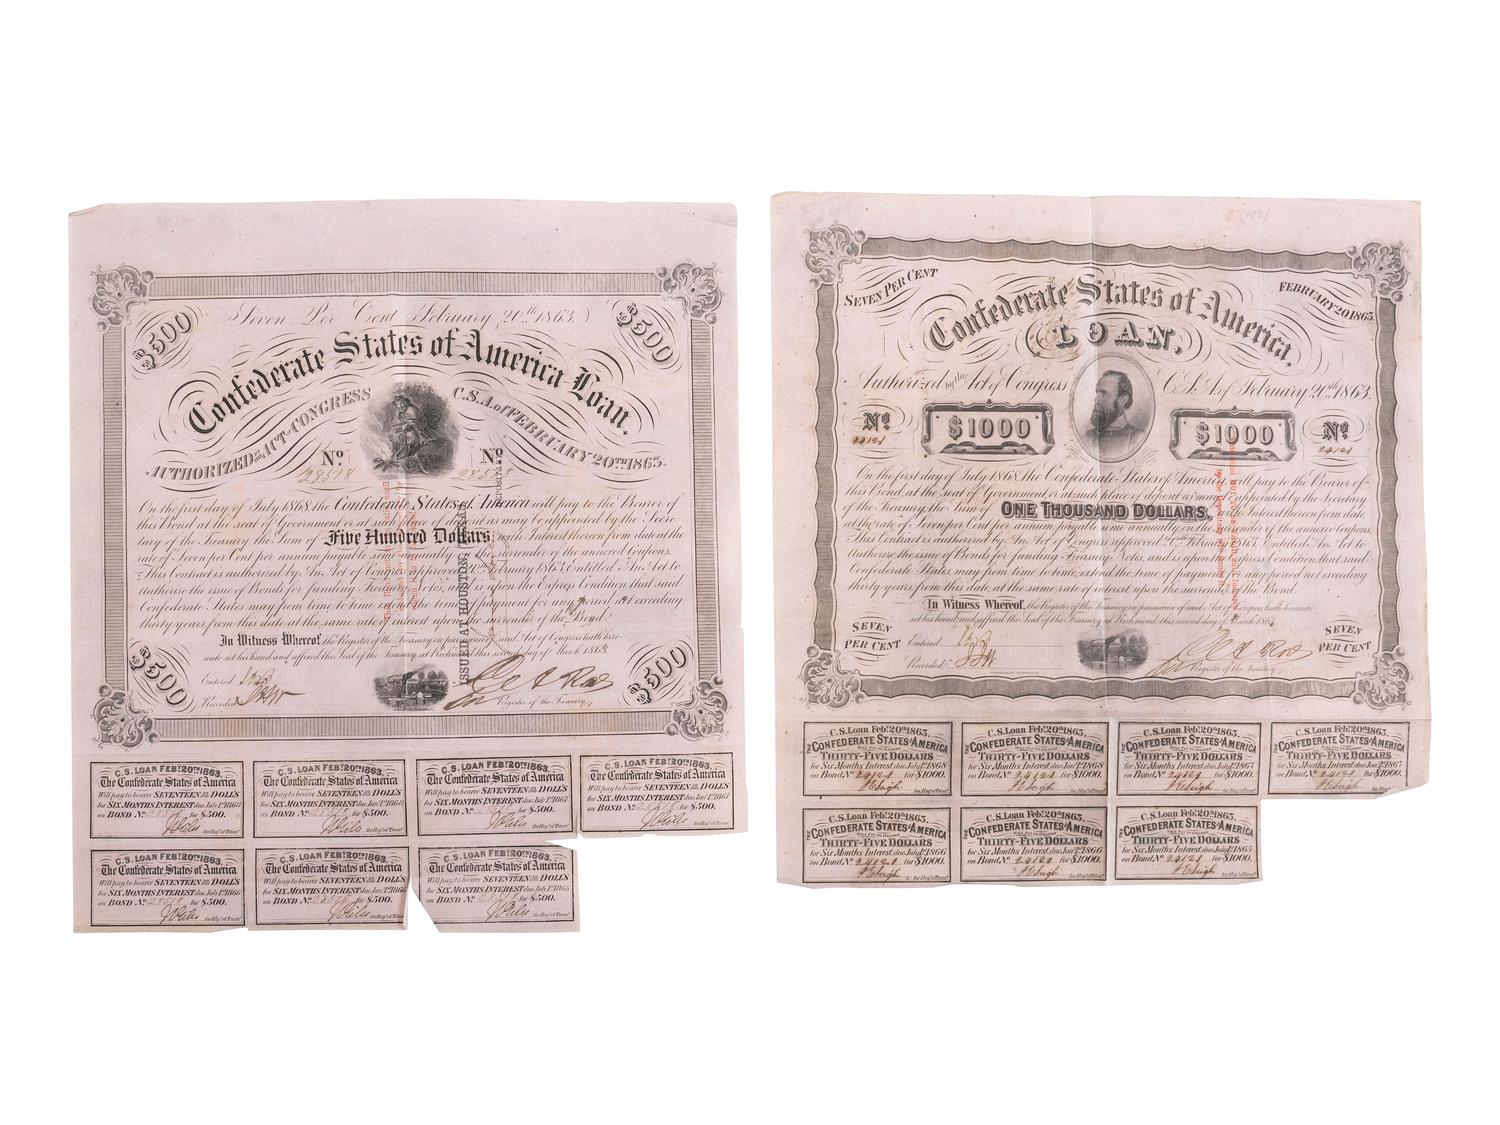 $500
Seven Per Cent February, 20th 1863.
$500
Confederate States of America Loan.
AUTHORIZED BY THE ACT OF CONGRESS C.S.A. of FEBRUARY 20TH 1863.
No No
On the first day of July 1868, the Confederate States of America will pay to the Bearer of
this Bond at the seat of Government or at such place of deposit as may be appointed by the Secre-
tary of the Treasury the Sum of Five Hundred Dollars with Interest thereon from date at the
rate of Seven per Cent per annum payable semi-annually on the surrender of the annexed Coupons.
This Contract is authorized by An Act of Congress approved February 1863, Entitled An Act to
authorise the issue of Bonds for funding Treasury Notes, and is upon the express Condition that said
Confederate States may from time to time extend the time of payment for any period not exceeding
thirty years from this date at the same rate of interest upon the surrender of the Bond.
In Witness Whereof the Register of the Treasury in pursuance of said Act of Congress hath here-
unto set his hand and affixed the Seal of the Treasury at Richmond this second day of March 1863
Entered
Recorded
Register of the Treasury,
$500
$500
ISSUED AT HOUSTON, TEXAS
DEPOSITARY
C.S. LOAN FEBY. 20TH 1863.
The Confederate States of America
Will pay to bearer SEVENTEEN DOLLS
for SIX MONTHS INTEREST due July 1st 1868
on BOND No for $500.
for Reg'r of Treas'y
C.S. LOAN FEBY. 20TH 1863.
The Confederate States of America
Will pay to bearer SEVENTEEN DOLLS
for SIX MONTHS INTEREST due Jan'y 1st 1868
on BOND No for $500.
for Reg'r of Treas'y
C.S. LOAN FEBY. 20TH 1863.
The Confederate States of America
Will pay to bearer SEVENTEEN DOLLS
for SIX MONTHS INTEREST due July 1st 1867
on BOND No for $500.
for Reg'r of Treas'y
C.S. LOAN FEBY. 20TH 1863.
The Confederate States of America
Will pay to bearer SEVENTEEN DOLLS
for SIX MONTHS INTEREST due Jan'y 1st 1867
on BOND No for $500.
for Reg'r of Treas'y
C.S. LOAN FEBY. 20TH 1863.
The Confederate States of America
Will pay to bearer SEVENTEEN DOLLS
for SIX MONTHS INTEREST due July 1st 1866
on BOND No for $500.
for Reg'r of Treas'y
C.S. LOAN FEBY. 20TH 1863.
The Confederate States of America
Will pay to bearer SEVENTEEN DOLLS
for SIX MONTHS INTEREST due Jan'y 1st 1866
on BOND No for $500.
for Reg'r of Treas'y
C.S. LOAN FEBY. 20TH 1863.
The Confederate States of America
Will pay to bearer SEVENTEEN DOLLS
for SIX MONTHS INTEREST due July 1st 1865
on BOND No for $500.
for Reg'r of Treas'y
SEVEN PER CENT
FEBRUARY 20 1863.
Confederate States of America.
LOAN,
Authorized by the Act of Congress C.S.A. of February 20th 1863.
No 24121 $1000 $1000 No 24121
On the first day of July 1868, the Confederate States of America will pay to the Bearer of
this Bond, at the seat of Government or at such place of deposit as may be appointed by the Secretary
of the Treasury the Sum of ONE THOUSAND DOLLARS, with Interest thereon from date,
at the rate of Seven per Cent per annum payable semi-annually on the surrender of the annexed coupons.
This Contract is authorized by An Act of Congress approved February 1863, Entitled An Act to
authorize the issue of Bonds for funding Treasury Notes, and is upon the express Condition that said
Confederate States may from time to time extend the time of payment for any period not exceeding
thirty years from this date, at the same rate of interest upon the surrender of the Bond.
In Witness Whereof, the Register of the Treasury in pursuance of said Act of Congress hath hereunto
set his hand and affixed the Seal of the Treasury at Richmond, this second day of March 1863
SEVEN PER CENT
Entered
Recorded
Register of the Treasury
SEVEN PER CENT
C.S. Loan Feby. 20th 1863,
THE CONFEDERATE STATES OF AMERICA
WILL PAY TO BEARER
THIRTY-FIVE DOLLARS
for Six Months Interest due July 1st 1868
on Bond No 24121 for $1000.
for Reg'r of Treas'y
C.S. Loan Feby. 20th 1863,
THE CONFEDERATE STATES OF AMERICA
WILL PAY TO BEARER
THIRTY-FIVE DOLLARS
for Six Months Interest due Jan'y 1st 1868
on Bond No 24121 for $1000.
for Reg'r of Treas'y
C.S. Loan Feby. 20th 1863,
THE CONFEDERATE STATES OF AMERICA
WILL PAY TO BEARER
THIRTY-FIVE DOLLARS
for Six Months Interest due July 1st 1867
on Bond No 24121 for $1000.
for Reg'r of Treas'y
C.S. Loan Feby. 20th 1863,
THE CONFEDERATE STATES OF AMERICA
WILL PAY TO BEARER
THIRTY-FIVE DOLLARS
for Six Months Interest due Jan'y 1st 1867
on Bond No 24121 for $1000.
for Reg'r of Treas'y
C.S. Loan Feby. 20th 1863,
THE CONFEDERATE STATES OF AMERICA
WILL PAY TO BEARER
THIRTY-FIVE DOLLARS
for Six Months Interest due July 1st 1866
on Bond No 24121 for $1000.
for Reg'r of Treas'y
C.S. Loan Feby. 20th 1863,
THE CONFEDERATE STATES OF AMERICA
WILL PAY TO BEARER
THIRTY-FIVE DOLLARS
for Six Months Interest due Jan'y 1st 1866
on Bond No 24121 for $1000.
for Reg'r of Treas'y
C.S. Loan Feby. 20th 1863,
THE CONFEDERATE STATES OF AMERICA
WILL PAY TO BEARER
THIRTY-FIVE DOLLARS
for Six Months Interest due July 1st 1865
on Bond No 24121 for $1000.
for Reg'r of Treas'y